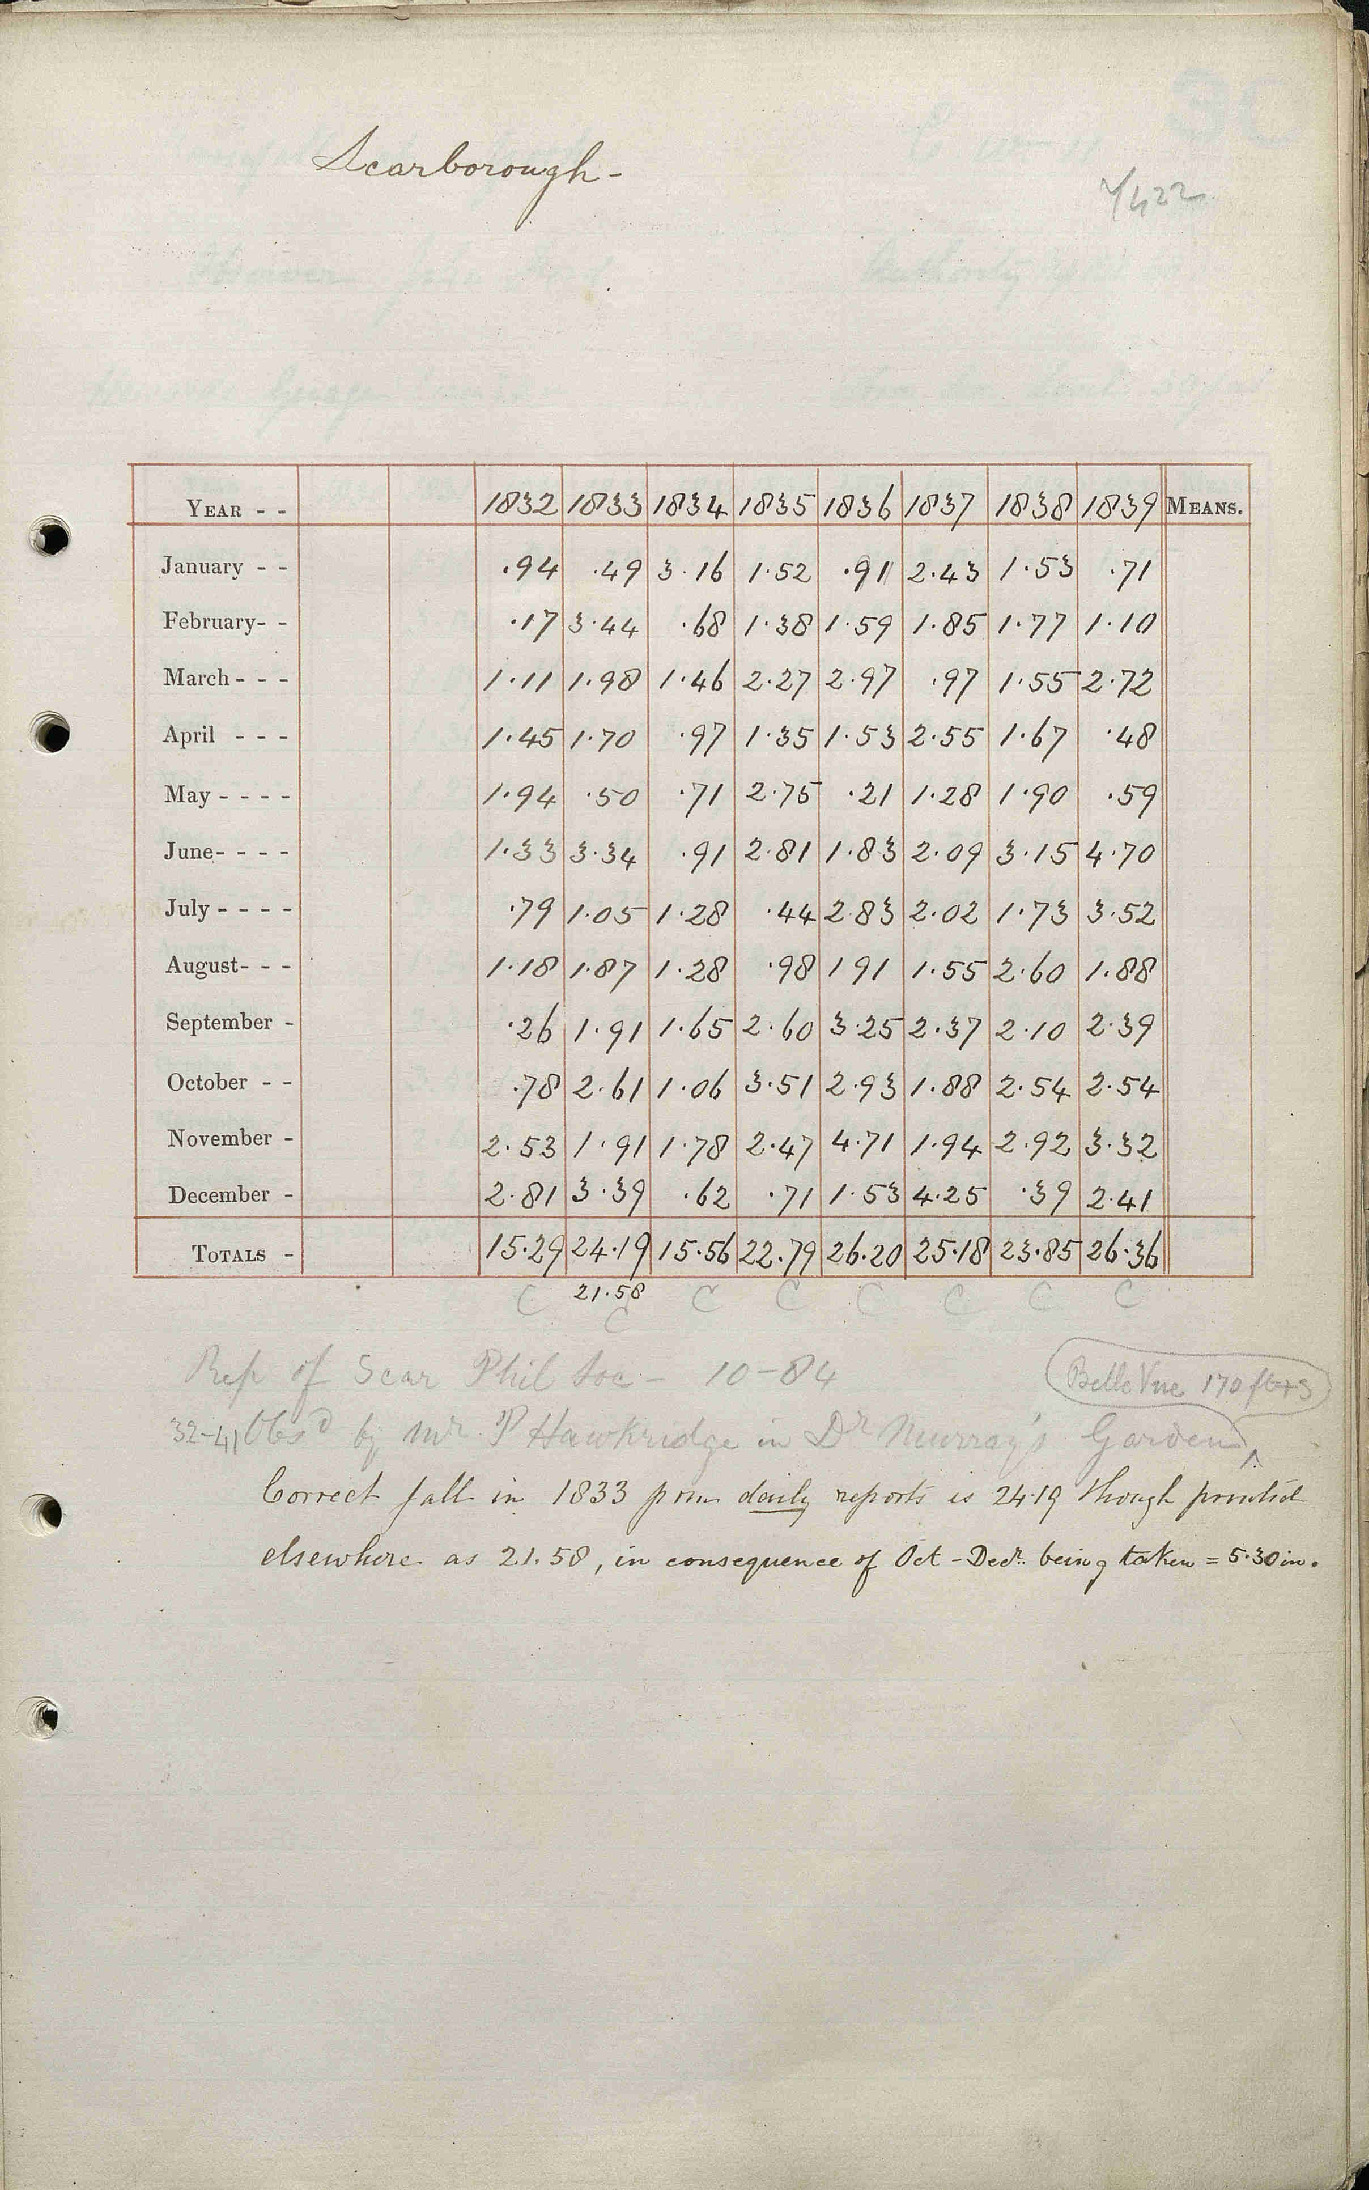 Scarborough -
YEAR - - 1832 1833 1834 1835 1836 1837 1838 1839 MEANS.
January - - .94 .49 3.16 1.52 .91 2.43 1.53 .71
February- - .17 3.44 .68 1.38 1.59 1.85 1.77 1.10
March - - - 1.11 1.98 1.46 2.27 2.97 .97 1.55 2.72
April - - - 1.45 1.70 .97 1.35 1.53 2.55 1.67 .48
May - - - - 1.94 .50 .71 2.75 .21 1.28 1.90 .59
June- - - - 1.33 3.34 .91 2.81 1.83 2.09 3.15 4.70
July - - - - .79 1.05 1.28 .44 2.83 2.02 1.73 3.52
August- - - 1.18 1.87 1.28 .98 1 91 1.55 2.60 1.88
September - .26 1.91 1.65 2.60 3.25 2.37 2.10 2.39
October - - .78 2.61 1.06 3.51 2.93 1.88 2.54 2.54
November - 2.53 1.91 1.78 2.47 4.71 1.94 2.92 3.32
December - 2.81 3.39 .62 .71 1.53 4.25 .39 2.41
TOTALS - 15.29 24.19 15.56 22.79 26.20 25.18 23.85 26.36
21.58
C C C C C C C C
Rep of Scar Phil Soc - 10-84
Belle Vue 170 ft
32-41 Obsd by Mr. P Hawkridge in Dr Murray's Garden
Correct fall in 1833 from daily reports is 24.19 though printed
elsewhere as 21.58, in consequence of Oct - Decr. being taken = 5.30 in.